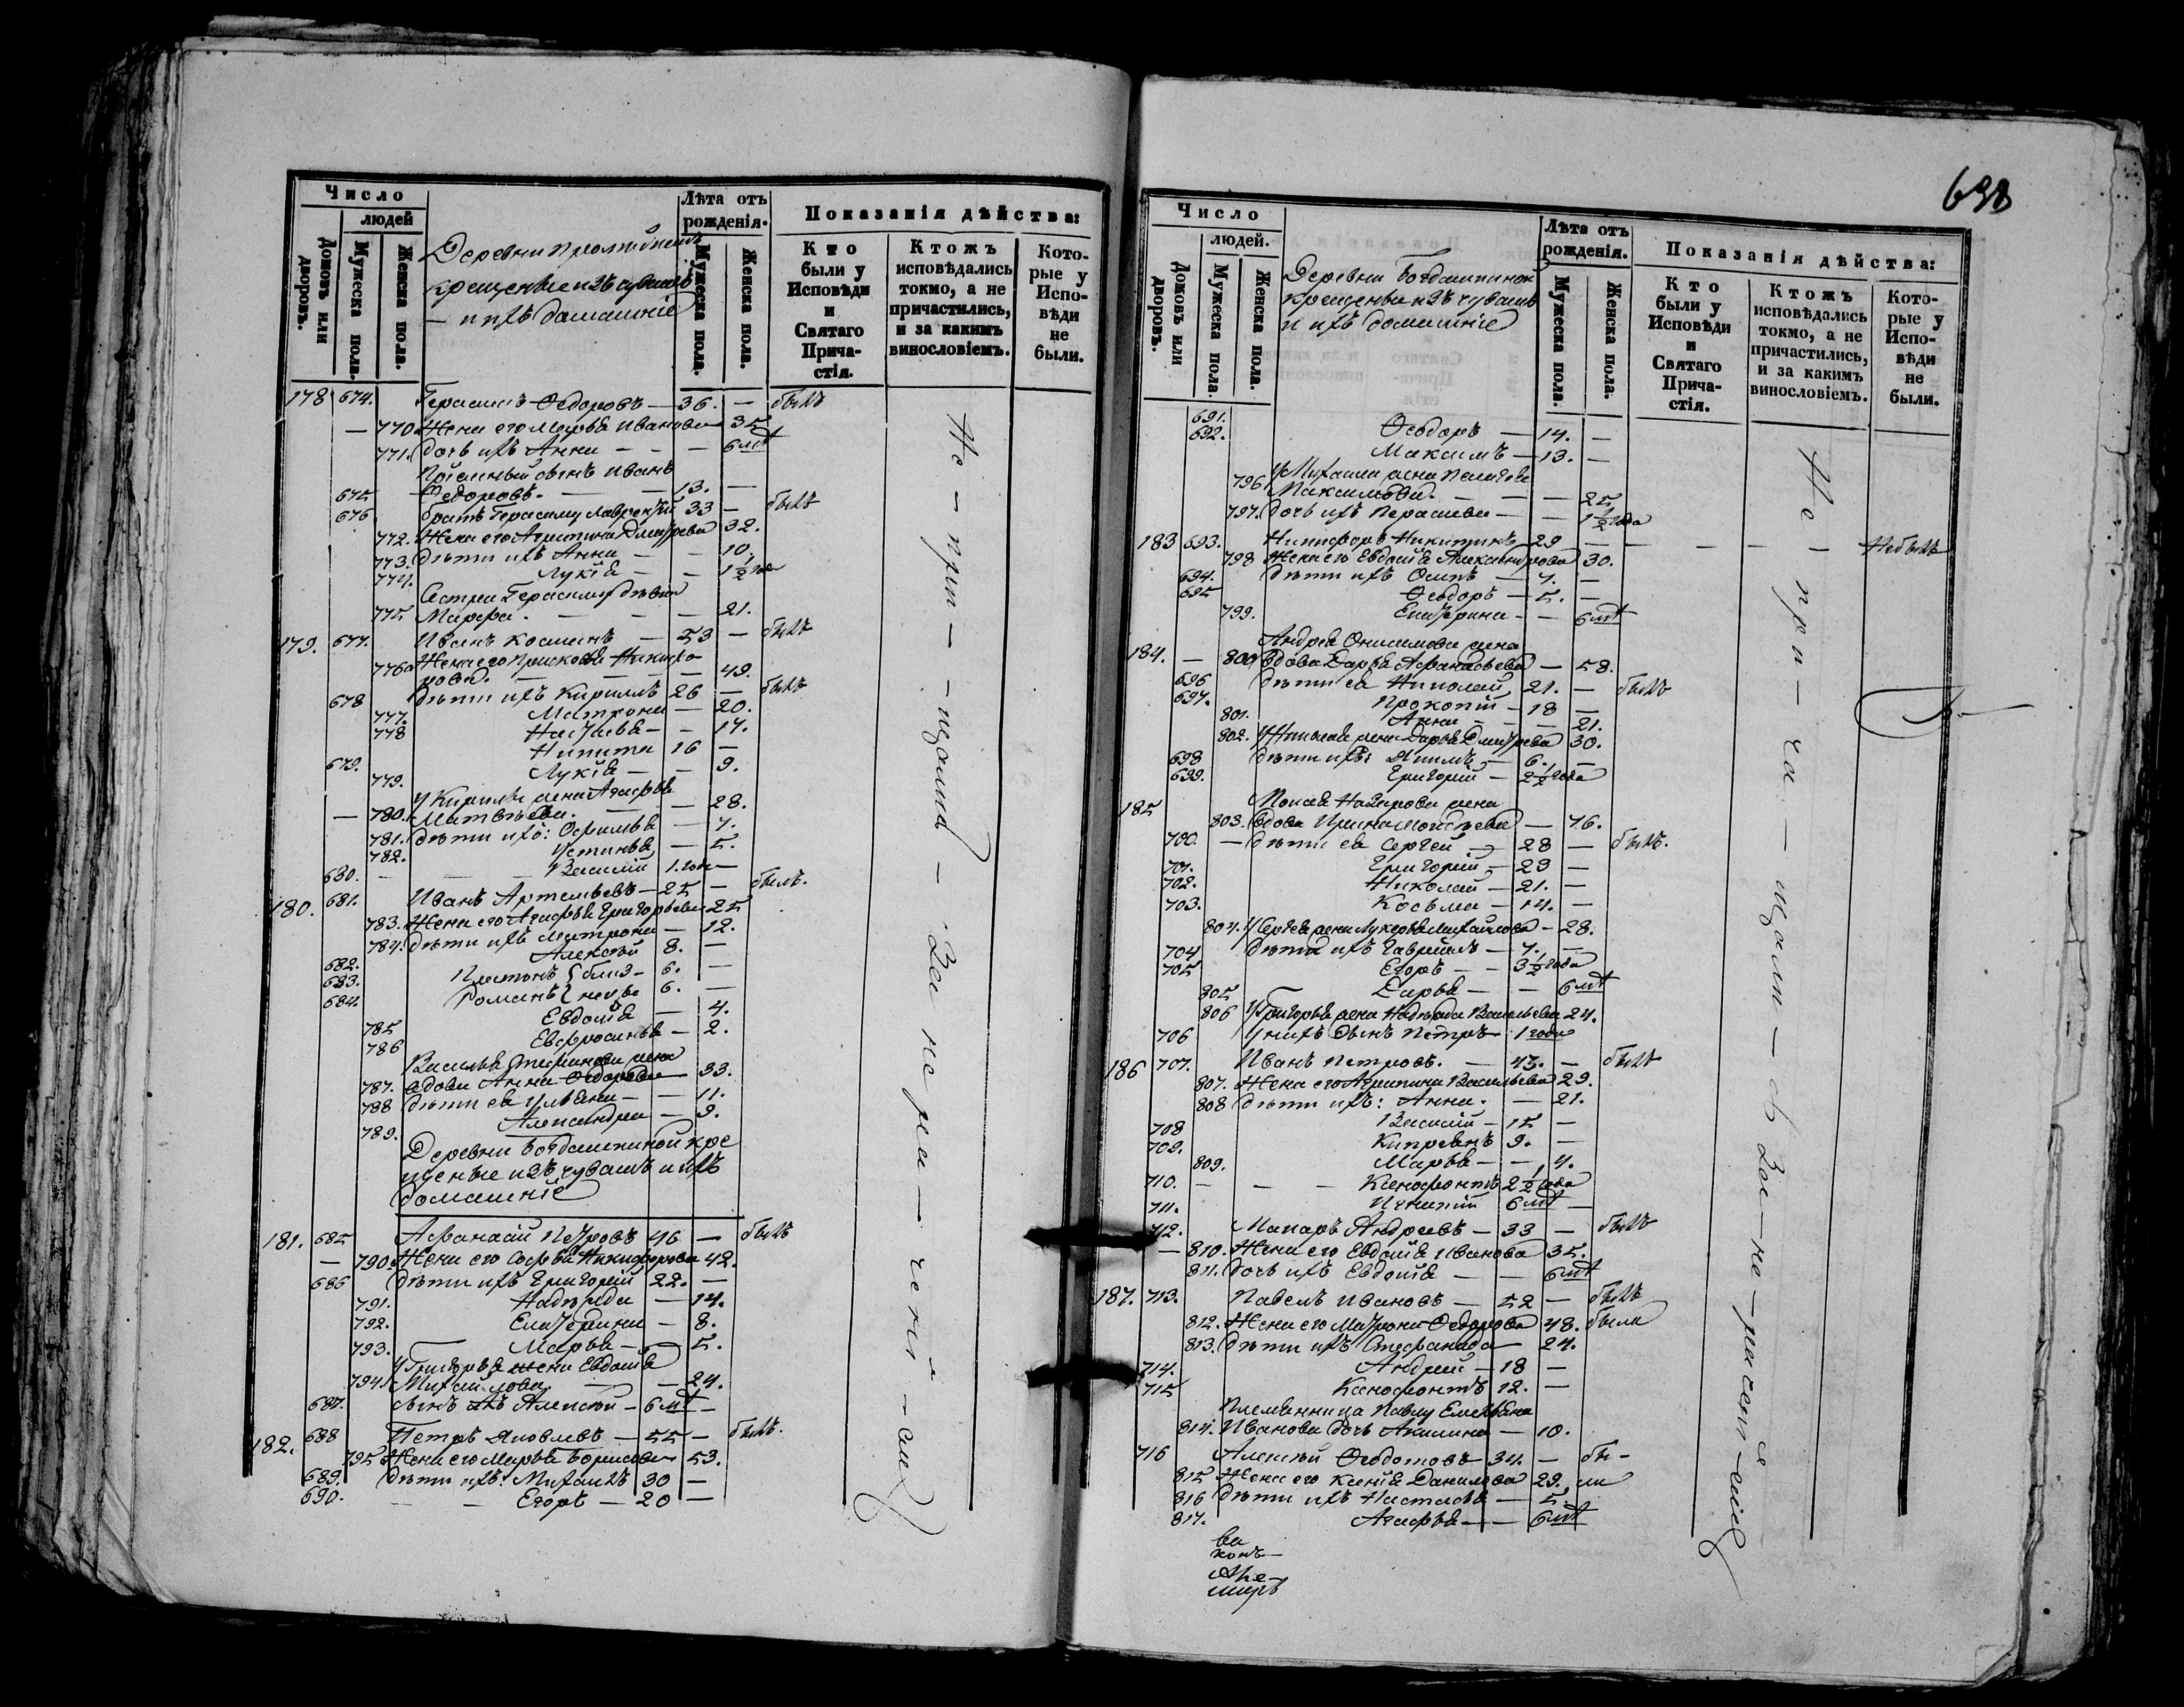 Число
людей
Домовъ или дворовъ.
Мужеска пола.
Женска пола.
Деревни
крещеные изъ чувашъ
— и ихъ домашніе
Лѣта отъ рожденія.
Мужеска пола.
Женска пола.
Показанія дѣйства:
Кто были у Исповѣди и Святаго Прича-стія.
Ктожъ исповѣдались токмо, а не причастились, и за какимъ винословіемъ.
Кото-рые у Испо-вѣди не были.
178 674. Герасимъ Ѳедоровъ — 36. — былъ
— 770 Жена его Марья Иванова 35
771. дочь ихъ Анна - - - 6 мѣ
сынъ Иванъ
675 Ѳедоровъ. — — 13. —
676 братъ Герасиму Лаврентій 33 — былъ
772. Жена его Агрипина Дмитрева 32.
773. дѣти ихъ Анна — - 10.
774. Лукія — - 1½ года
Сестра Герасиму дѣвка
775 Марфа. — — — 21.
179. 677. Иванъ Косминъ — 53 — былъ
776 Жена его Прасковья Никифо-
рова. — — — 49.
678 дѣти ихъ Кириллъ 26 — былъ
777. Матрона — 20.
778 Настасья — - 17.
679. Никита 16 —
779. Лукія — - 9.
У Кирилы жена Агафья
— 780. Матвѣева. — — 28.
781. дѣти ихъ: Офимья — 7.
782. Устинья — 5.
680. — — — Василій 1. годъ —
180. 681. Иванъ Артемьевъ — 25 — былъ.
783. Жена его Агафья Григорьева 25
784. дѣти ихъ Матрона — 12.
682. Алексѣй 8. —
683. Платонъ близ- 6. —
684. Романъ нецы 6. —
785 Евдокія — 4.
786 Евфросинья — 2.
Василья Стефанова жена
787. вдова Анна Ѳедорова — 33.
788 дѣти ея Ульяна — — 11.
789. Александра — 9.
Деревни Богдашкиной кре
щеные изъ чувашъ и ихъ
домашніе
181. 685 Афанасій Петровъ 46 — былъ
— 790 Жена его Софья Никифорова 42.
686 дѣти ихъ Григорій 22. —
791. Надежда — 14.
792. Екатерина — 8.
793. Марья — — 5.
У Григорья жена Евдокія
794. Михайлова — — 24.
687. сынъ ихъ Алексѣй — 6 мѣ —
182. 688 Петръ Яковлевъ — 55 — былъ.
795 Жена его Марья Борисова 53.
689. дѣти ихъ: Михаилъ 30 —
690. — — Егоръ — 20 —
Не — при — — щены — за не ра — чені — емъ
638
Число
людей.
Домовъ или дворовъ.
Мужеска пола
Женска пола.
Деревни Богдашкиной
крещеные изъ чувашъ
и ихъ домашніе
Лѣта отъ рожденія.
Мужеска пола.
Женска пола.
Показанія дѣйства:
Кто были у Исповѣди и Святаго Прича-стія.
Ктожъ исповѣдались токмо, а не причастились, и за какимъ винословіемъ.
Кото-рые у Испо-вѣди не были.
691. Ѳеодоръ — 14. —
692. Максимъ — 13. —
796 У Михаила жена Пелагея
Максимова. — — — 25
797. дочь ихъ Парасковья — — 1½ года
183 693. Никифоръ Никитинъ — 29 — — — — — Небылъ
798 Жена его Евдокія Александрова 30.
694. дѣти ихъ Осипъ — 7. —
695 Ѳеодоръ — 5. —
799. Екатерина - - 6 мѣ
Андрея Онисимова жена
184. — 800 вдова Дарья Афанасьева — 58.
696 дѣти ея Николай 21. — былъ
697. Прокопій — 18 —
801. Анна — - — 21.
802. У Николая жена Дарья Дмитрева 30.
698 дѣти ихъ: Якимъ — 6. —
699. Григорій — 2½ года
185 Моисея Назарова жена
803. вдова Ирина Моисѣева — 76.
700. — дѣти ея Сергей — 28 — былъ.
701. Григорій — 23 —
702. Николай — 21. —
703. Косьма — 14. —
804. У Сергея жена Лукерья Михайлова — 28.
704 дѣти ихъ Гавриилъ — 7. —
705 Егоръ — - 3½ года
805 Дарья — — 6 мѣ
806 У Григорья жена Надежда Васильева 24.
706 У нихъ сынъ Петръ — 1 года
186 707. Иванъ Петровъ. — 43. — былъ
807. Жена его Агрипина Васильева 29.
808 дѣти ихъ: Анна. — 21.
708 Василій — 15 —
709. Кипреянъ 9. —
809. Марья — — 4.
710. — — — Ксенофонтъ 2½ года
711. Игнатій 6 мѣ —
712. Макаръ Андреевъ — 33 — былъ
— 810. Жена его Евдокія Иванова 35.
811. дочь ихъ Евдокія — — 6 мѣ
187. 713. Павелъ Ивановъ — 52 — былъ
812. Жена его Матрона Ѳедорова 48. была
813. дѣти ихъ Стефанида — 24.
714. Андрей — 18 —
715 Ксенофонтъ 12. —
Племянница Павлу Емельяна
814. Иванова дочь Акилина — 10.
716 Алексѣй Ѳеодотовъ — 34. — бы-
815 Жена его Ксенія Данилова 29. ли
816 дѣти ихъ Настасья — 5.
817. Агафья — — 6 мѣ
Не при — ча — щены — съ за — не — расен — емъ